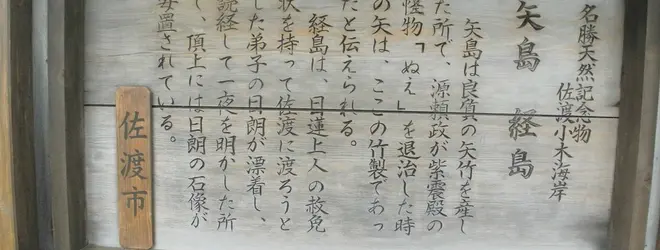 名勝天然記念物
佐渡小木海岸
矢島 経島
矢島は良質の矢竹を産し
た所で、源頼政が紫震殿の
怪物「ぬえ」を退治した時
の矢は、ここの竹製であっ
たと伝えられる。
経島は、日蓮上人の赦免
状を持って佐渡に渡ろうと
した弟子の日朗が漂着し、
読経して一夜を明かした所
で、頂上には日朗の石像が
安置されている。
佐渡市